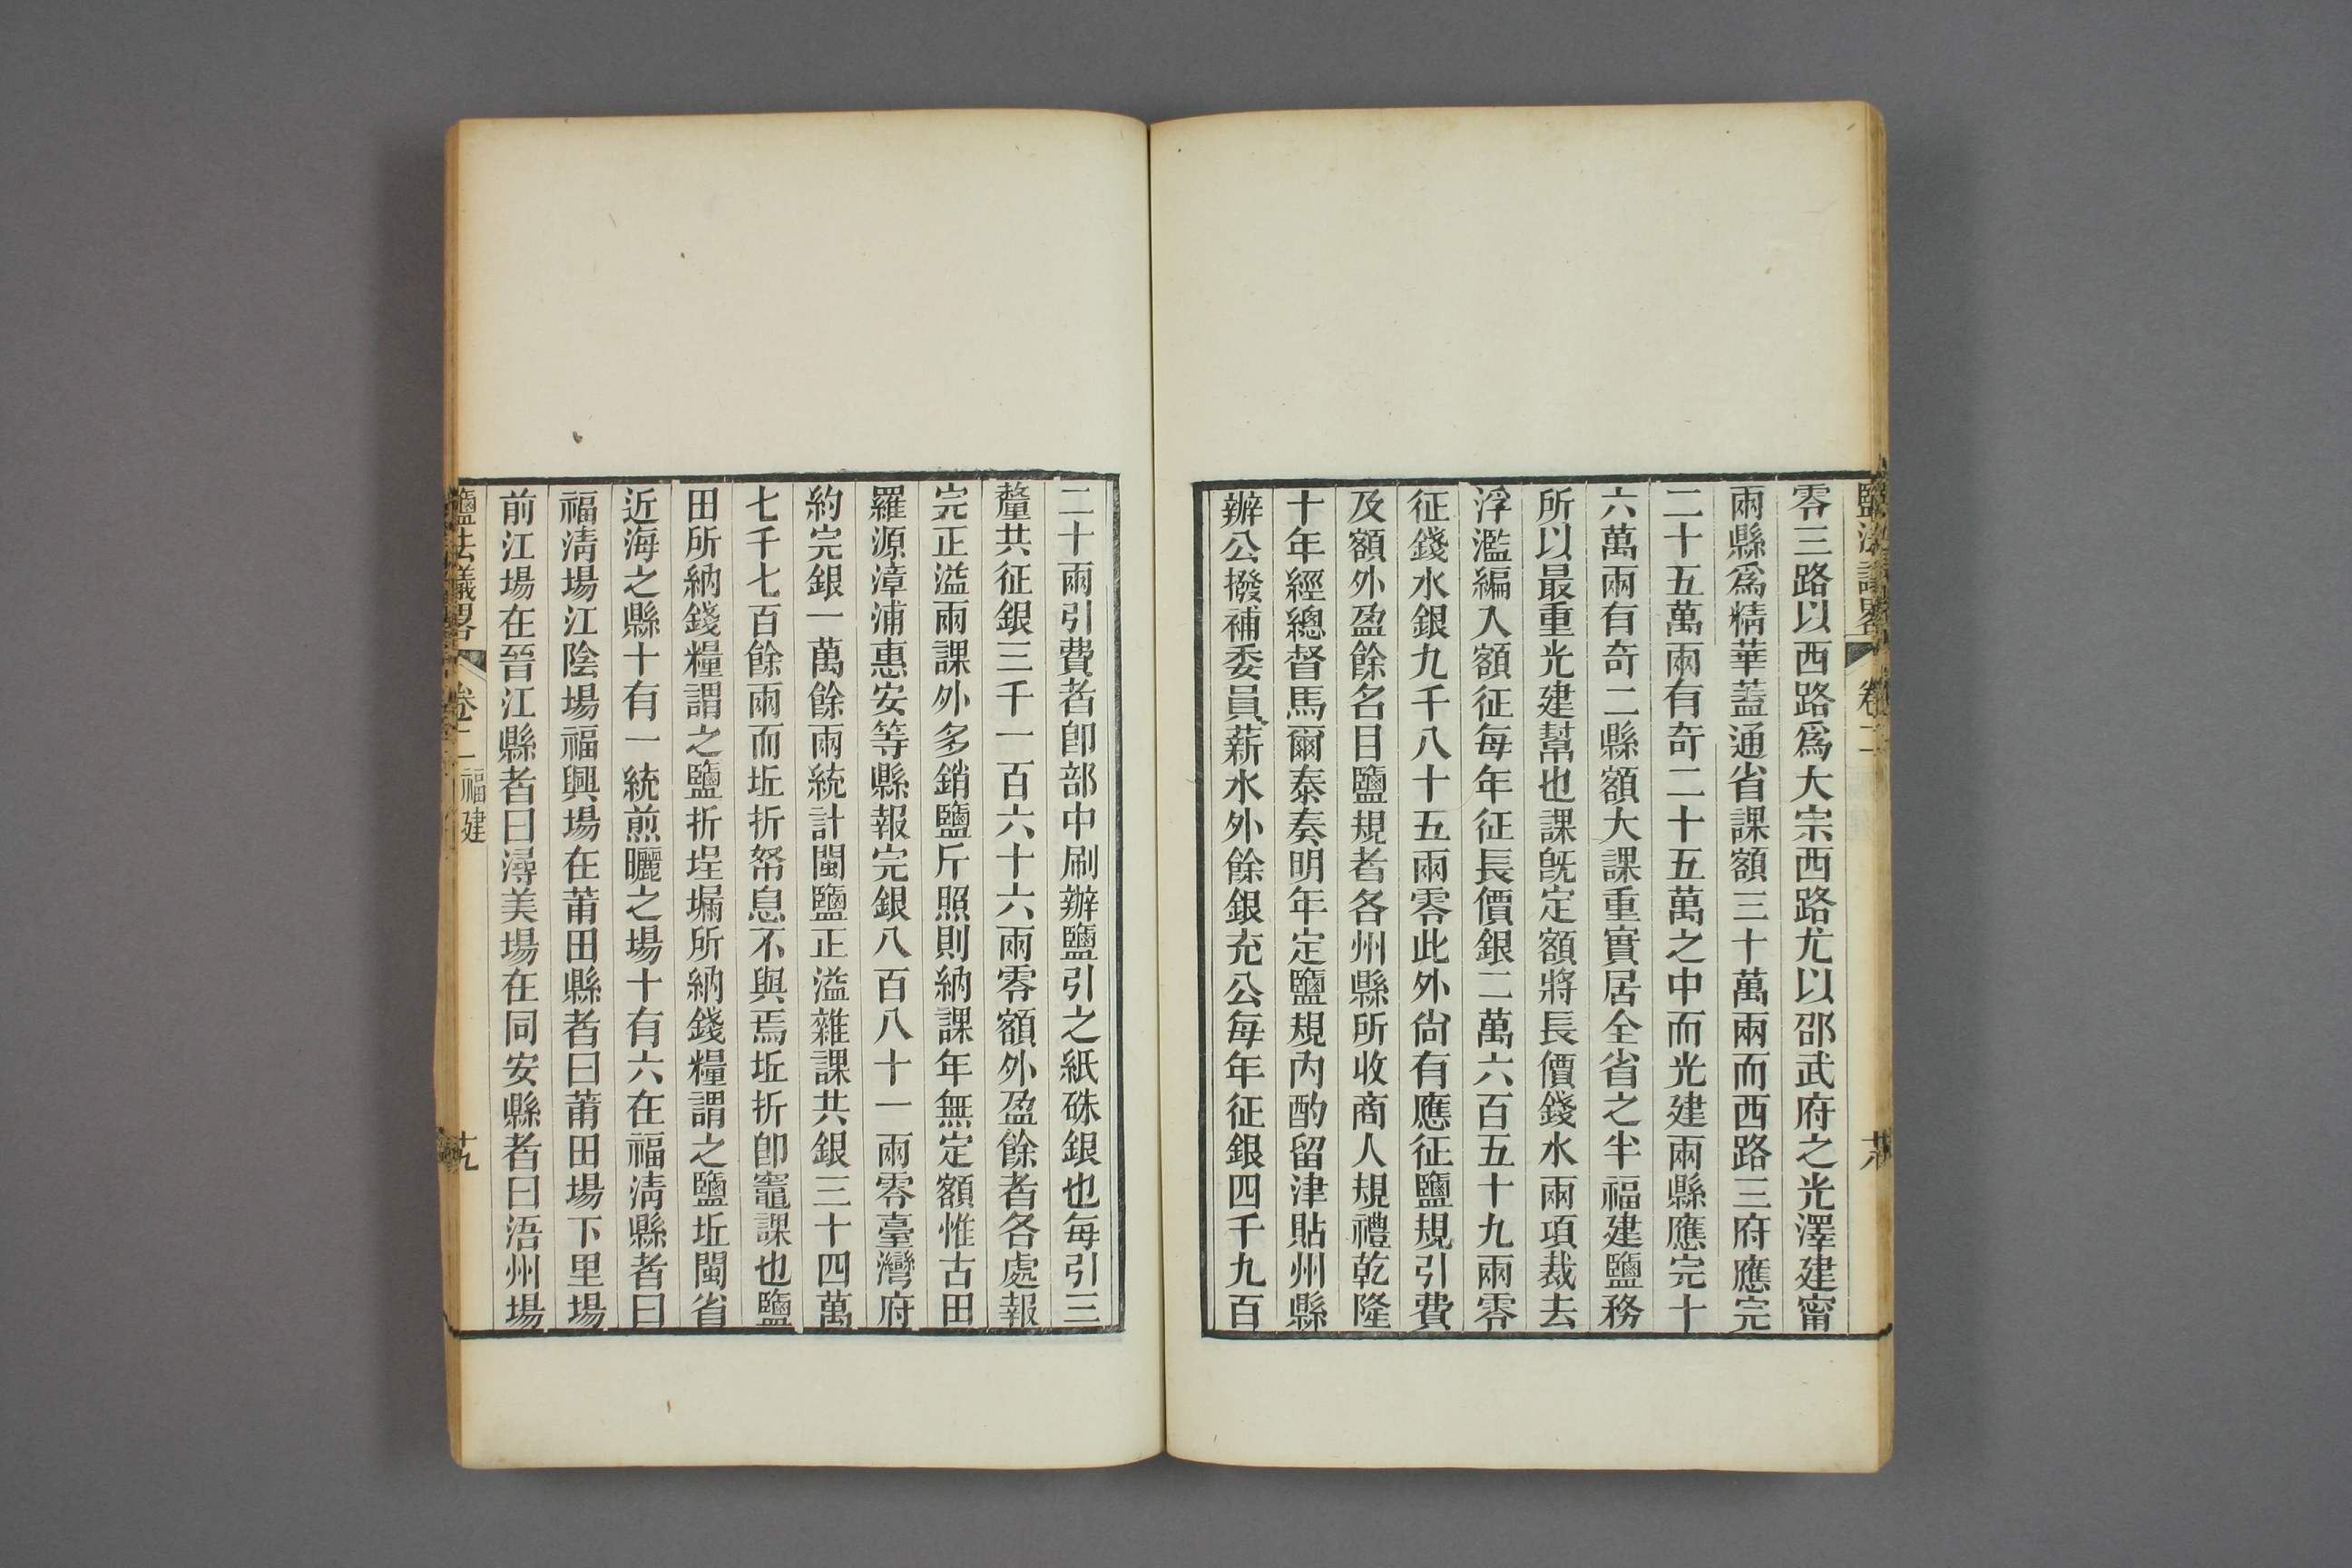 鹽法議畧
卷二
十八
零三路以西路爲大宗西路尤以邵武府之光澤建甯
兩縣爲精華蓋通省課額三十萬兩而西路三府應完
二十五萬兩有奇二十五萬之中而光建兩縣應完十
六萬兩有奇二縣額大課重實居全省之半福建鹽務
所以最重光建幫也課旣定額將長價錢水兩項裁去
浮濫編入額征每年征長價銀二萬六百五十九兩零
征錢水銀九千八十五兩零此外尙有應征鹽規引費
及額外盈餘名目鹽規者各州縣所收商人規禮乾隆
十年經總督馬爾泰奏明年定鹽規內酌留津貼州縣
辦公撥補委員薪水外餘銀充公每年征銀四千九百
二十兩引費者卽部中刷辦鹽引之紙硃銀也每引三
釐共征銀三千一百六十六兩零額外盈餘者各處報
完正溢兩課外多銷鹽斤照則納課年無定額惟古田
羅源漳浦惠安等縣報完銀八百八十一兩零臺灣府
約完銀一萬餘兩統計閩鹽正溢雜課共銀三十四萬
七千七百餘兩而坵折帑息不與焉坵折卽竈課也鹽
田所納錢糧謂之鹽折埕塥所納錢糧謂之鹽坵閩省
近海之縣十有一統煎曬之場十有六在福淸縣者曰
福淸場江陰場福興場在莆田縣者曰莆田場下里場
前江場在晉江縣者曰潯美場在同安縣者曰浯州場
鹽法議畧
卷二
福建
十九